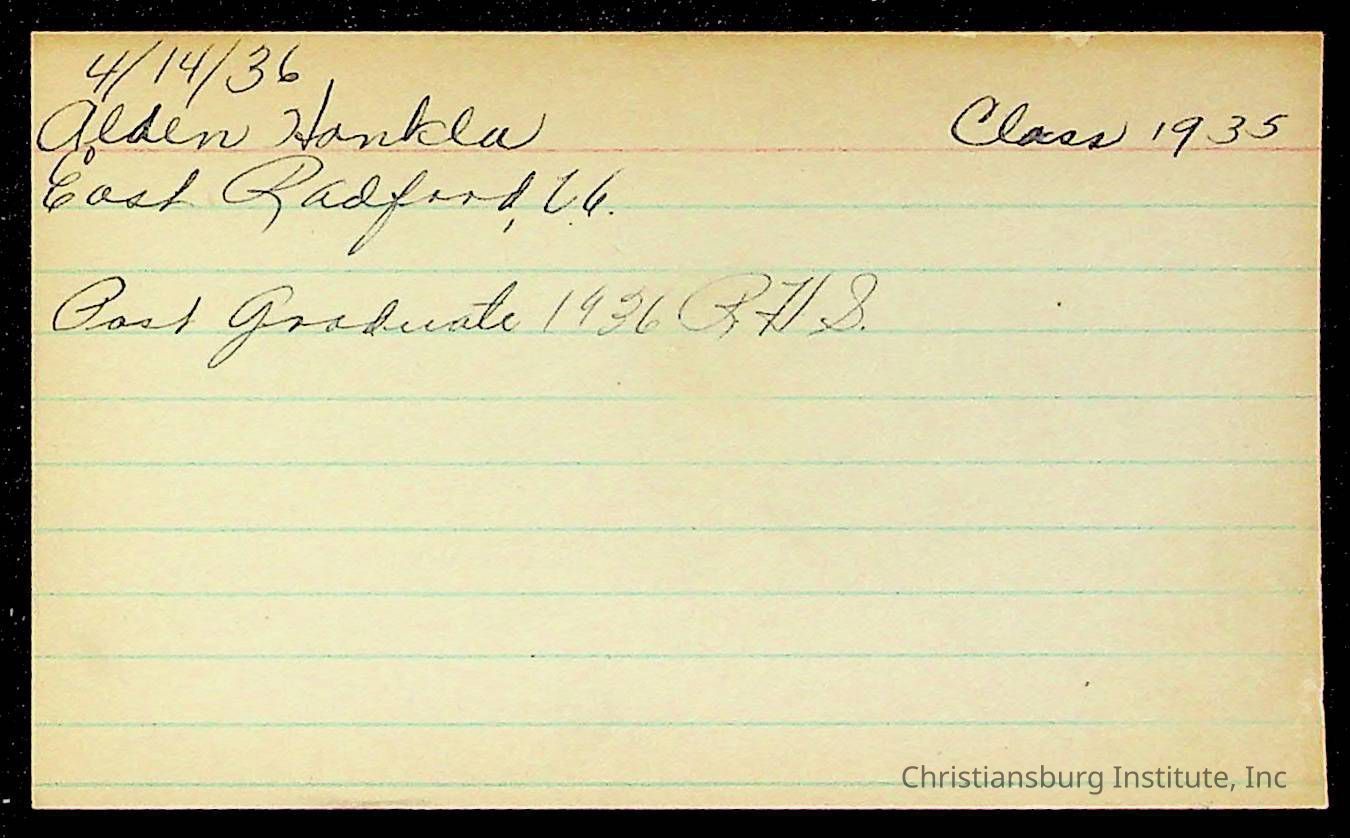 4/14/36
Alden Honkla Class 1935
East Radford, Va.
Post Graduate 1936 R.H.S.
Christiansburg Institute, Inc